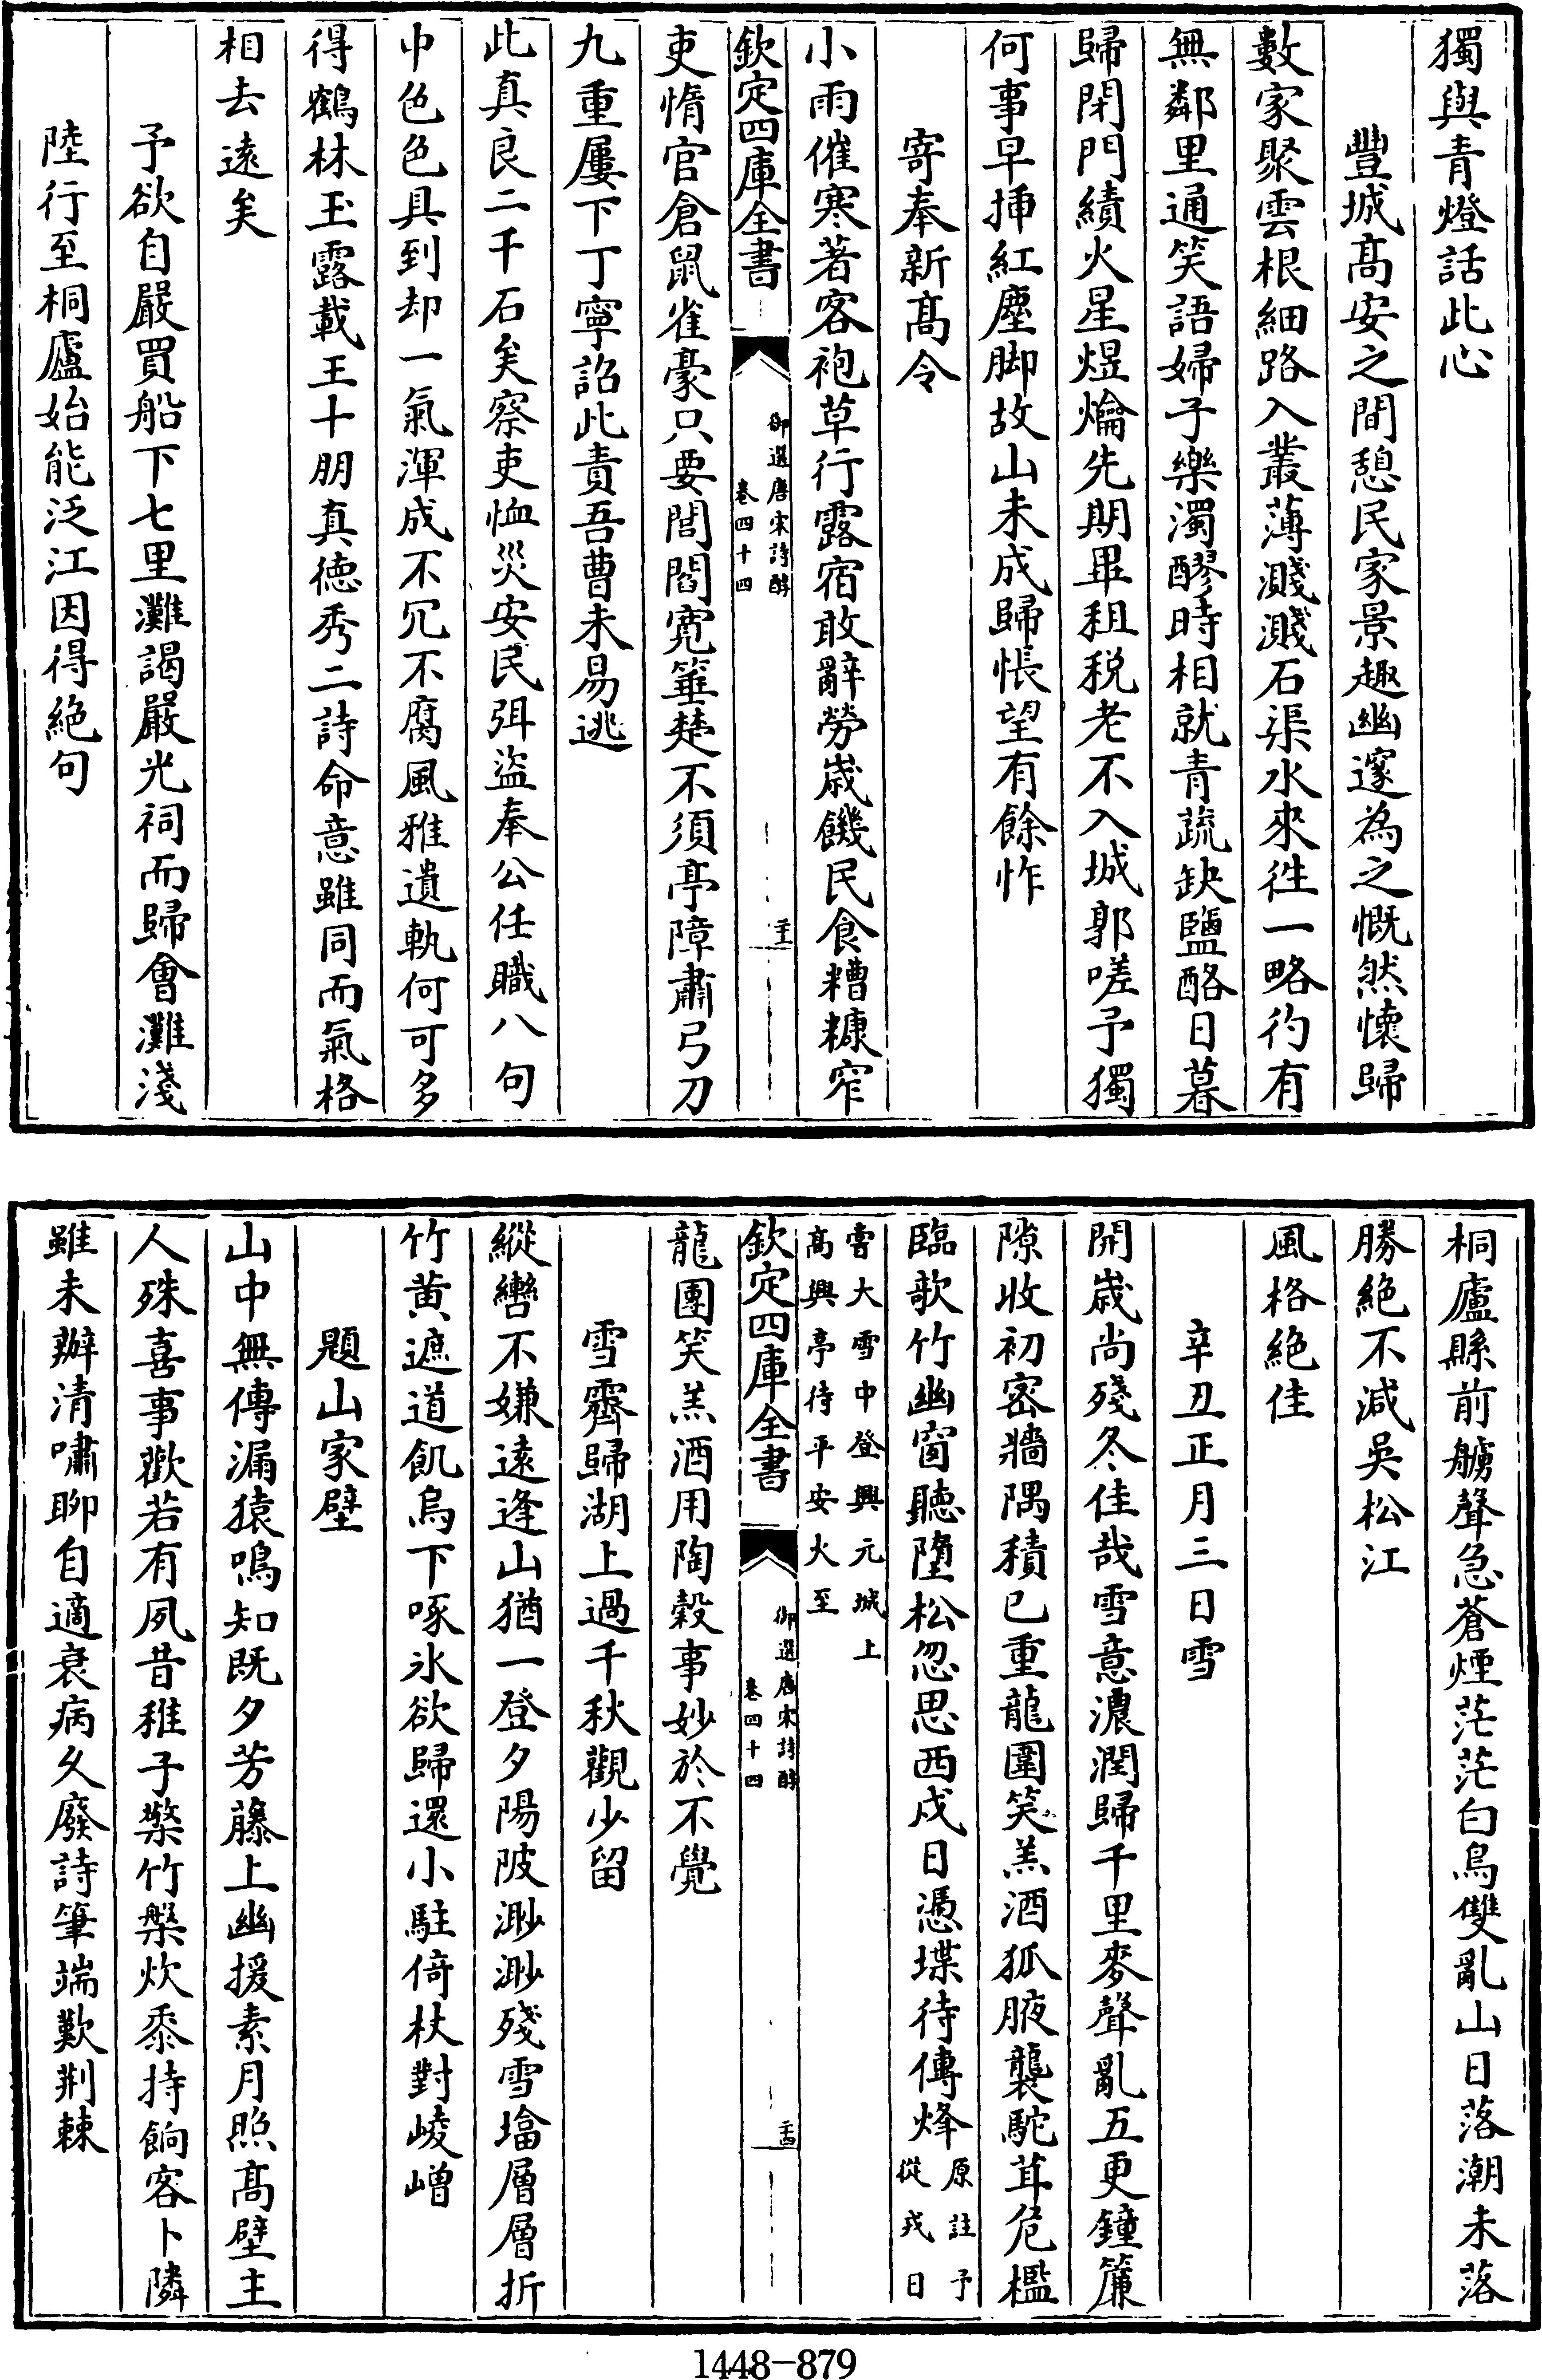 獨與青燈話此心
豐城髙安之間憩民家景趣幽邃為之慨然懐歸
數家聚雲根細路入叢薄濺濺石渠水來徃一略彴有
無鄰里通笑語婦子樂濁醪時相就青蔬缺鹽酪日暮
歸閉門績火星煜爚先期畢租税老不入城郭嗟予獨
何事早揷紅塵脚故山未成歸悵望有餘怍
寄奉新髙令
小雨催寒著客袍草行露宿敢辭勞歲饑民食糟糠窄
欽定四庫全書
御選唐宋詩醇
卷四十四
吏惰官倉鼠雀豪只要閭閻寛箠楚不須亭障肅弓刀
九重屢下丁寧詔此責吾曹未易逃
此真良二千石矣察吏恤災安民弭盜奉公任職八句
中色色具到却一氣渾成不冗不腐風雅遺軌何可多
得鶴林玉露載王十朋真徳秀二詩命意雖同而氣格
相去逺矣
予欲自嚴買船下七里灘謁嚴光祠而歸會灘淺
陸行至桐廬始能泛江因得絶句
桐廬縣前艣聲急蒼煙茫茫白鳥雙亂山日落潮未落
勝絶不減吳松江
風格絶佳
辛丑正月三日雪
開歲尚殘冬佳哉雪意濃潤歸千里麥聲亂五更鐘簾
隙收初密牆隅積已重龍團笑羔酒狐腋襲駝茸危檻
臨歌竹幽窗聽墮松忽思西戍日憑堞待傳烽
原註予
從戎日
嘗大雪中登興元城上
髙興亭待平安火至
欽定四庫全書
御選唐宋詩醇
卷四十四
龍團笑羔酒用陶穀事妙於不覺
雪霽歸湖上過千秋觀少留
縱轡不嫌逺逢山猶一登夕陽陂渺渺殘雪墖層層折
竹黄遮道飢烏下啄氷欲歸還小駐倚杖對崚嶒
題山家壁
山中無傳漏猿鳴知既夕芳藤上幽援素月照髙壁主
人殊喜事歡若有夙昔稚子檠竹槃炊黍持餉客卜隣
雖未辦清嘯聊自適衰病久廢詩筆端歎荆棘
1448-879